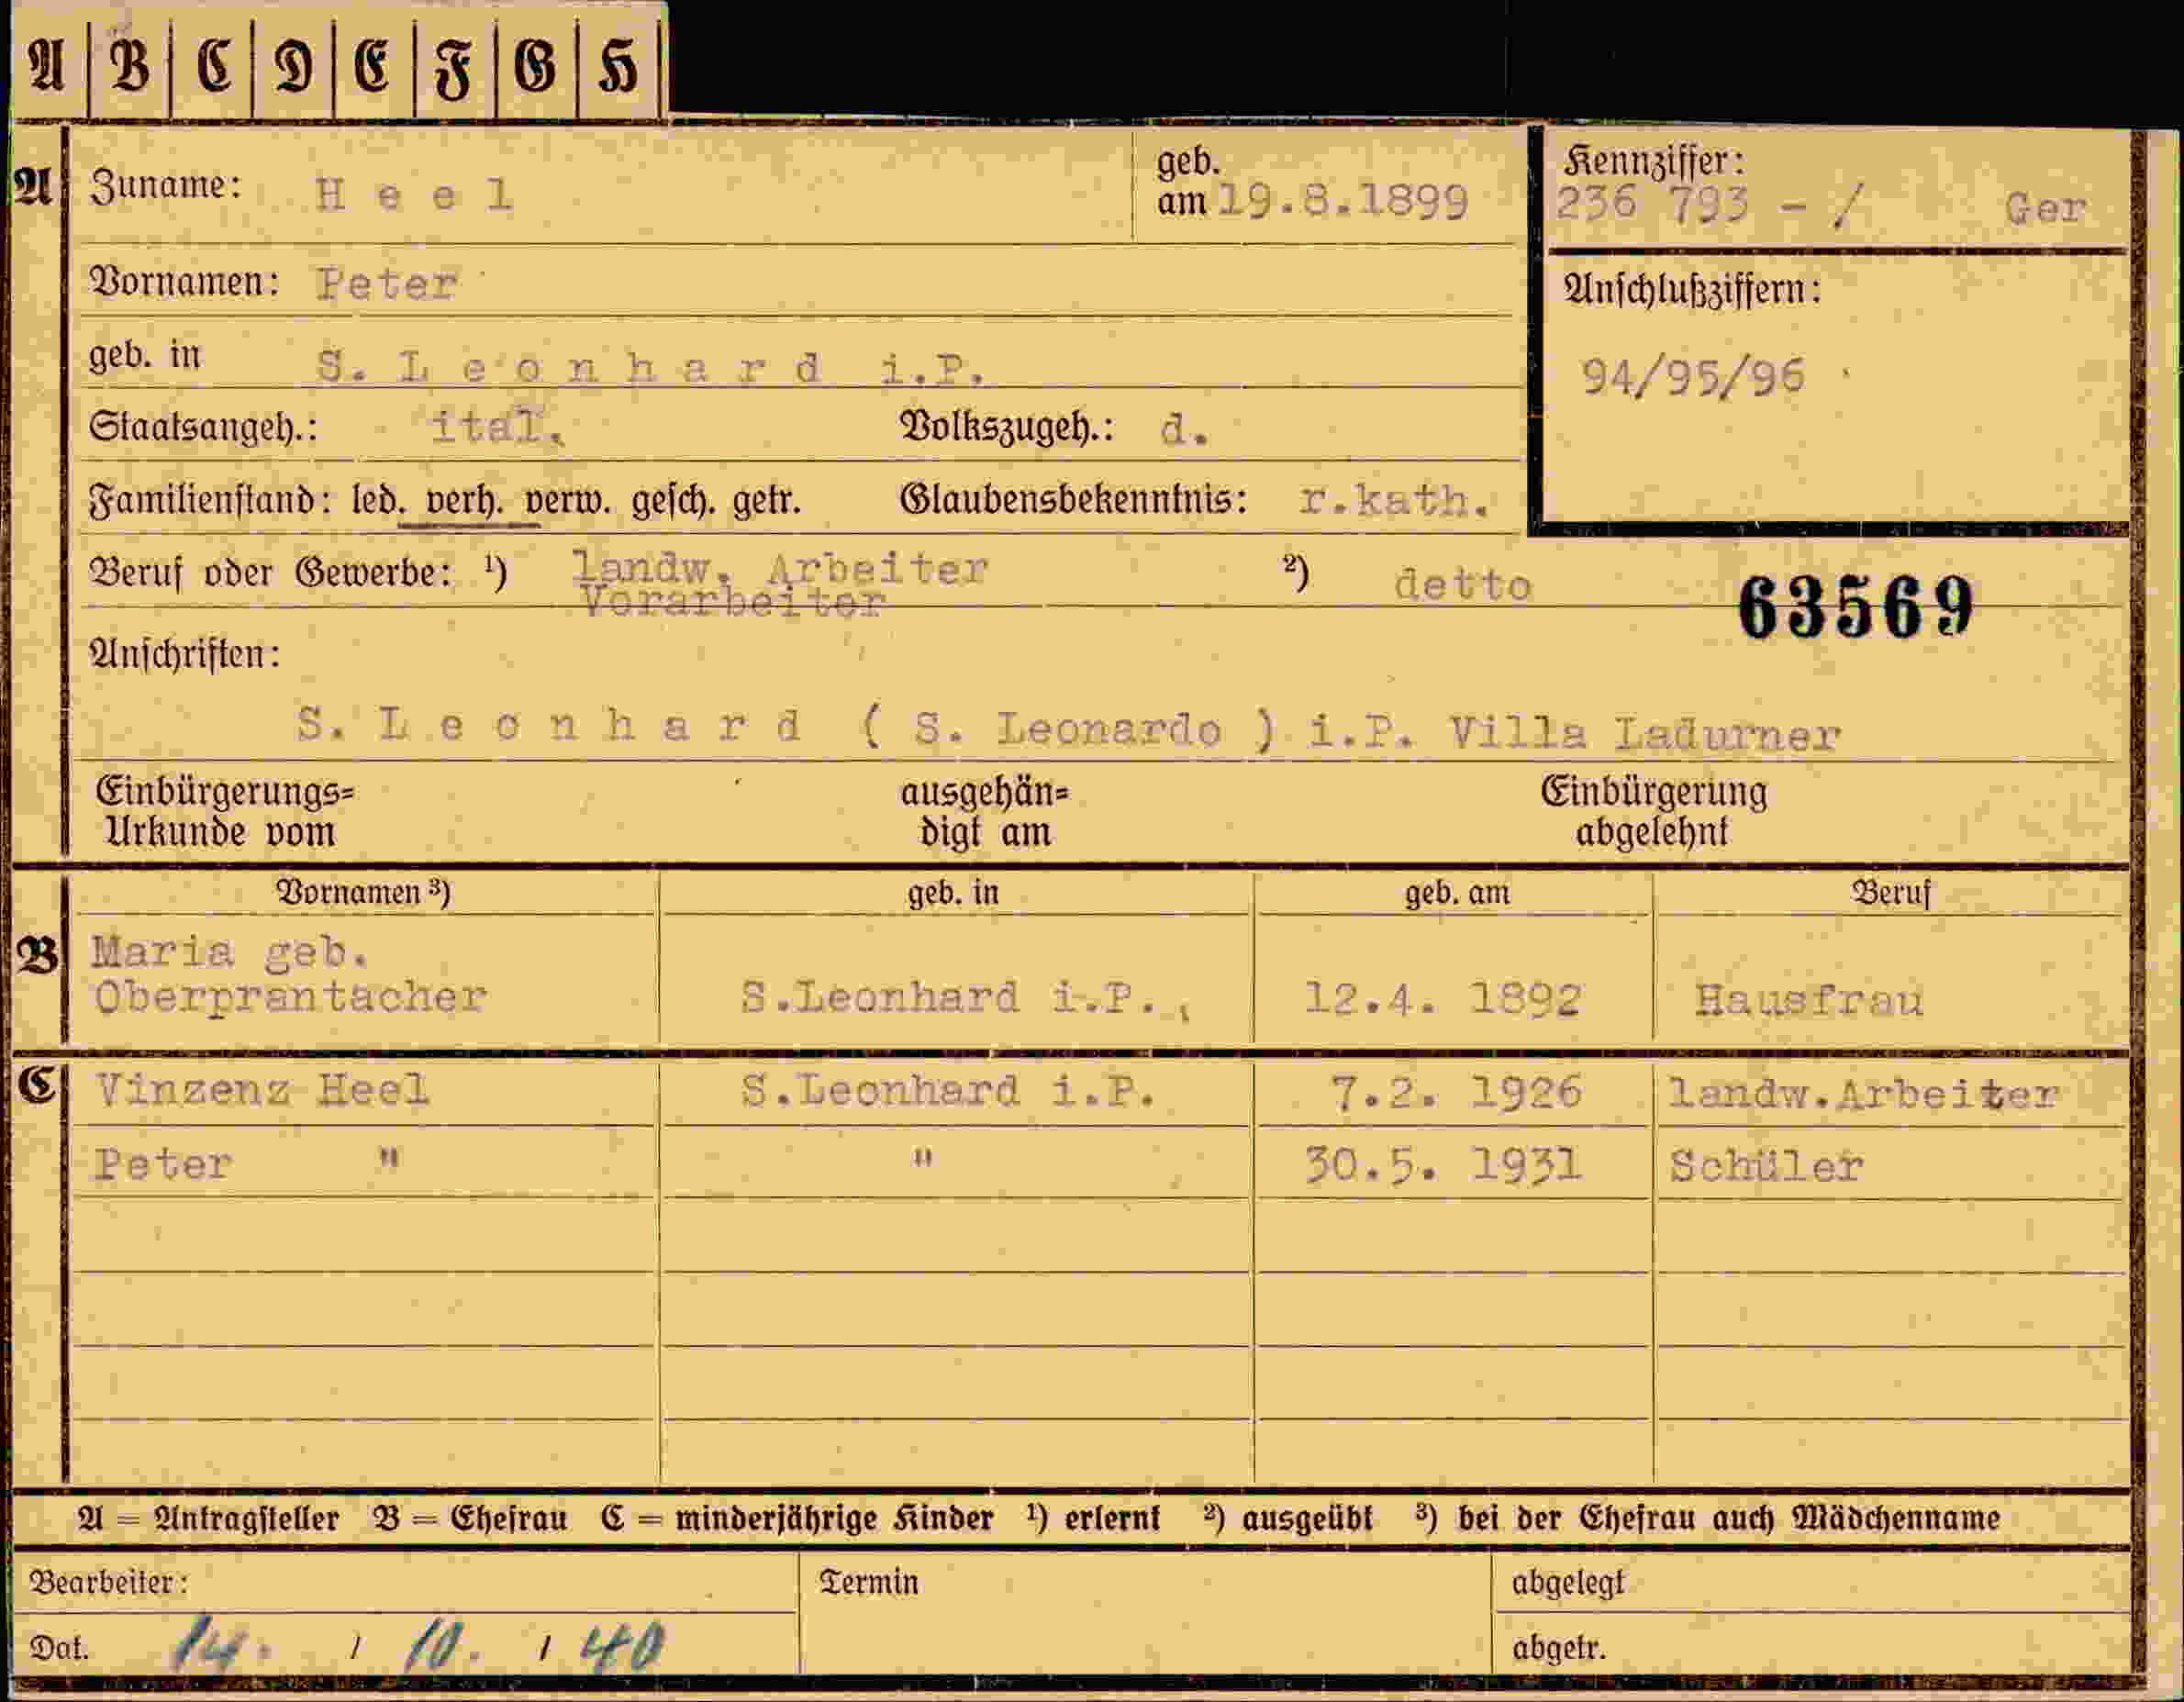 A B C D E F G H
A Zuname: H e e l geb. am 19.8.1899
Kennziffer:
236 793 - / Ger
Vornamen: Peter
Anschlußziffern:
94/95/96
geb. in S. L e o n h a r d i.P.
Staatsangeh.: ital. Volkszugeh.: d.
Familienstand: led. verh. verw. gesch. getr. Glaubensbekenntnis: r.kath.
Beruf oder Gewerbe: ¹) landw. Arbeiter ²) detto
Vorarbeiter
63569
Anschriften:
S. L e o n h a r d ( S. Leonardo ) i.P. Villa Ladurner
Einbürgerungs= ausgehän= Einbürgerung
Urkunde vom digt am abgelehnt
Vornamen ³) geb. in geb. am Beruf
B Maria geb.
Oberprantacher S.Leonhard i.P., 12.4. 1892 Hausfrau
C Vinzenz Heel S.Leonhard i.P. 7.2. 1926 landw.Arbeiter
Peter " " 30.5. 1931 Schüler
A = Antragsteller B = Ehefrau C = minderjährige Kinder ¹) erlernt ²) ausgeübt ³) bei der Ehefrau auch Mädchenname
Bearbeiter: Termin abgelegt
Dat. 14. / 10. / 40 abgetr.